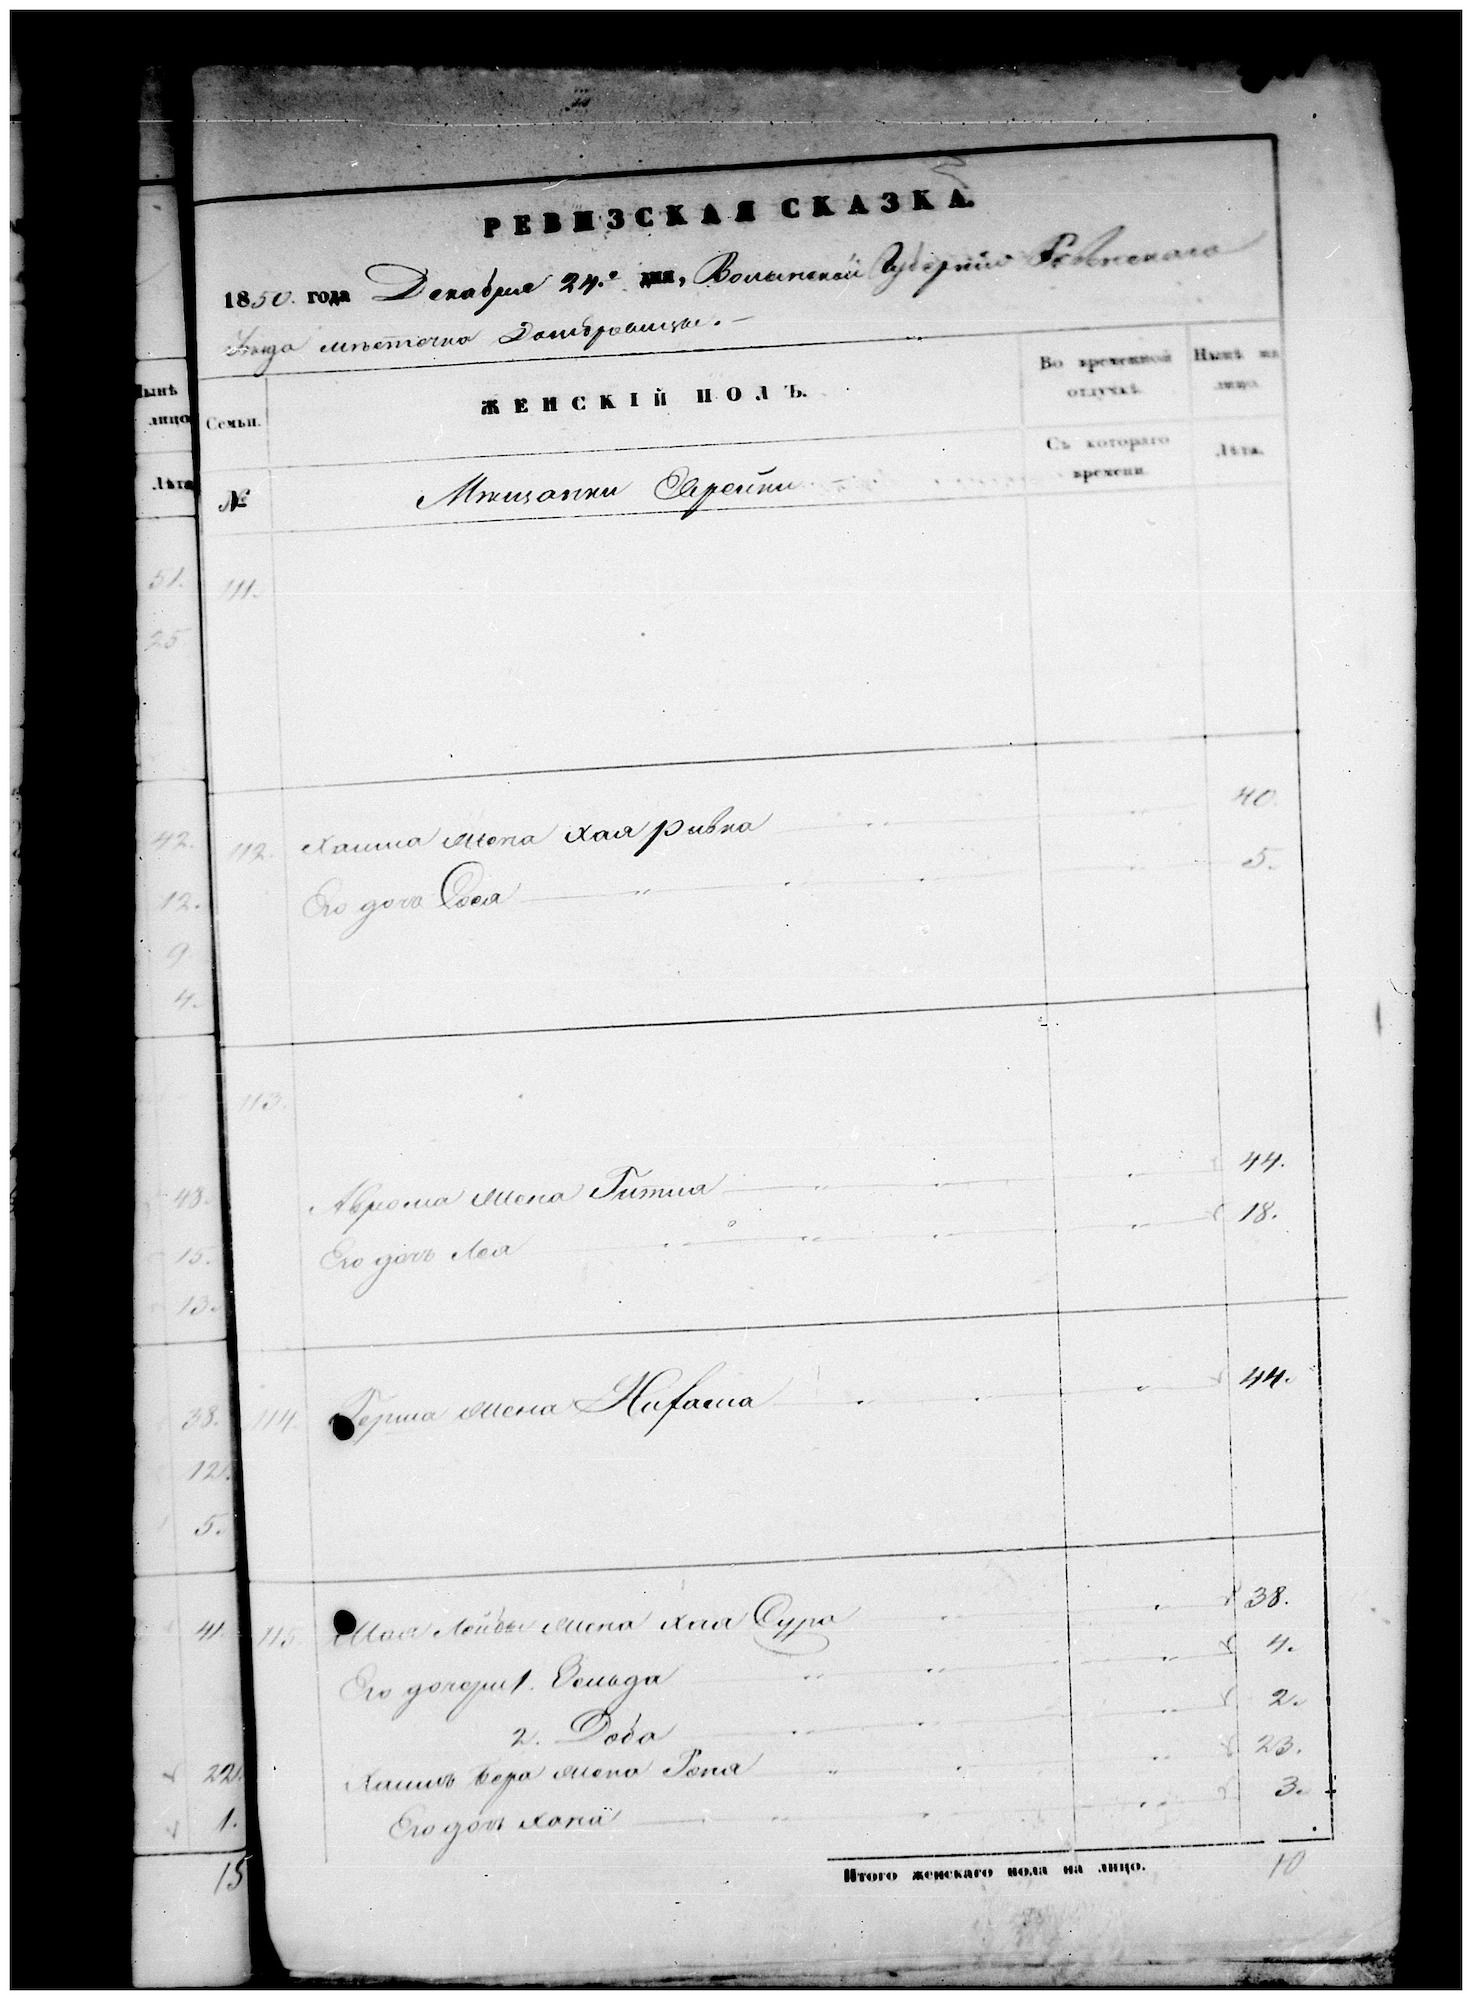 РЕВИЗСКАЯ СКАЗКА.
1850. года Декабря 24.го дня, Волынской Губернии Ровенскаго
Уѣзда мѣстечка Домбровицы.
Нынѣ
лицо
Лѣта
Семьи.
ЖЕНСКІЙ ПОЛЪ.
Во временной отлучкѣ.
Нынѣ на лицо.
№
Мѣщанки Еврейки
Съ котораго времени.
Лѣта.
51.
111.
25
42. 112. Хаима жена Хая Ривка 40.
12. Его дочь Сося 5.
9
4.
113.
48. Аврома жена Гитля 44.
15. Его дочь Лея 18.
13.
38. 114. Герша жена 44.
12.
5.
41. 115. Лейбы жена Хая Сура 38.
Его дочери 1. Зельда 4.
2. Доба 2.
22. Хаимъ Бера жена 23.
1. Его дочь Хана 3.
15
Итого женскаго пола на лицо. 10